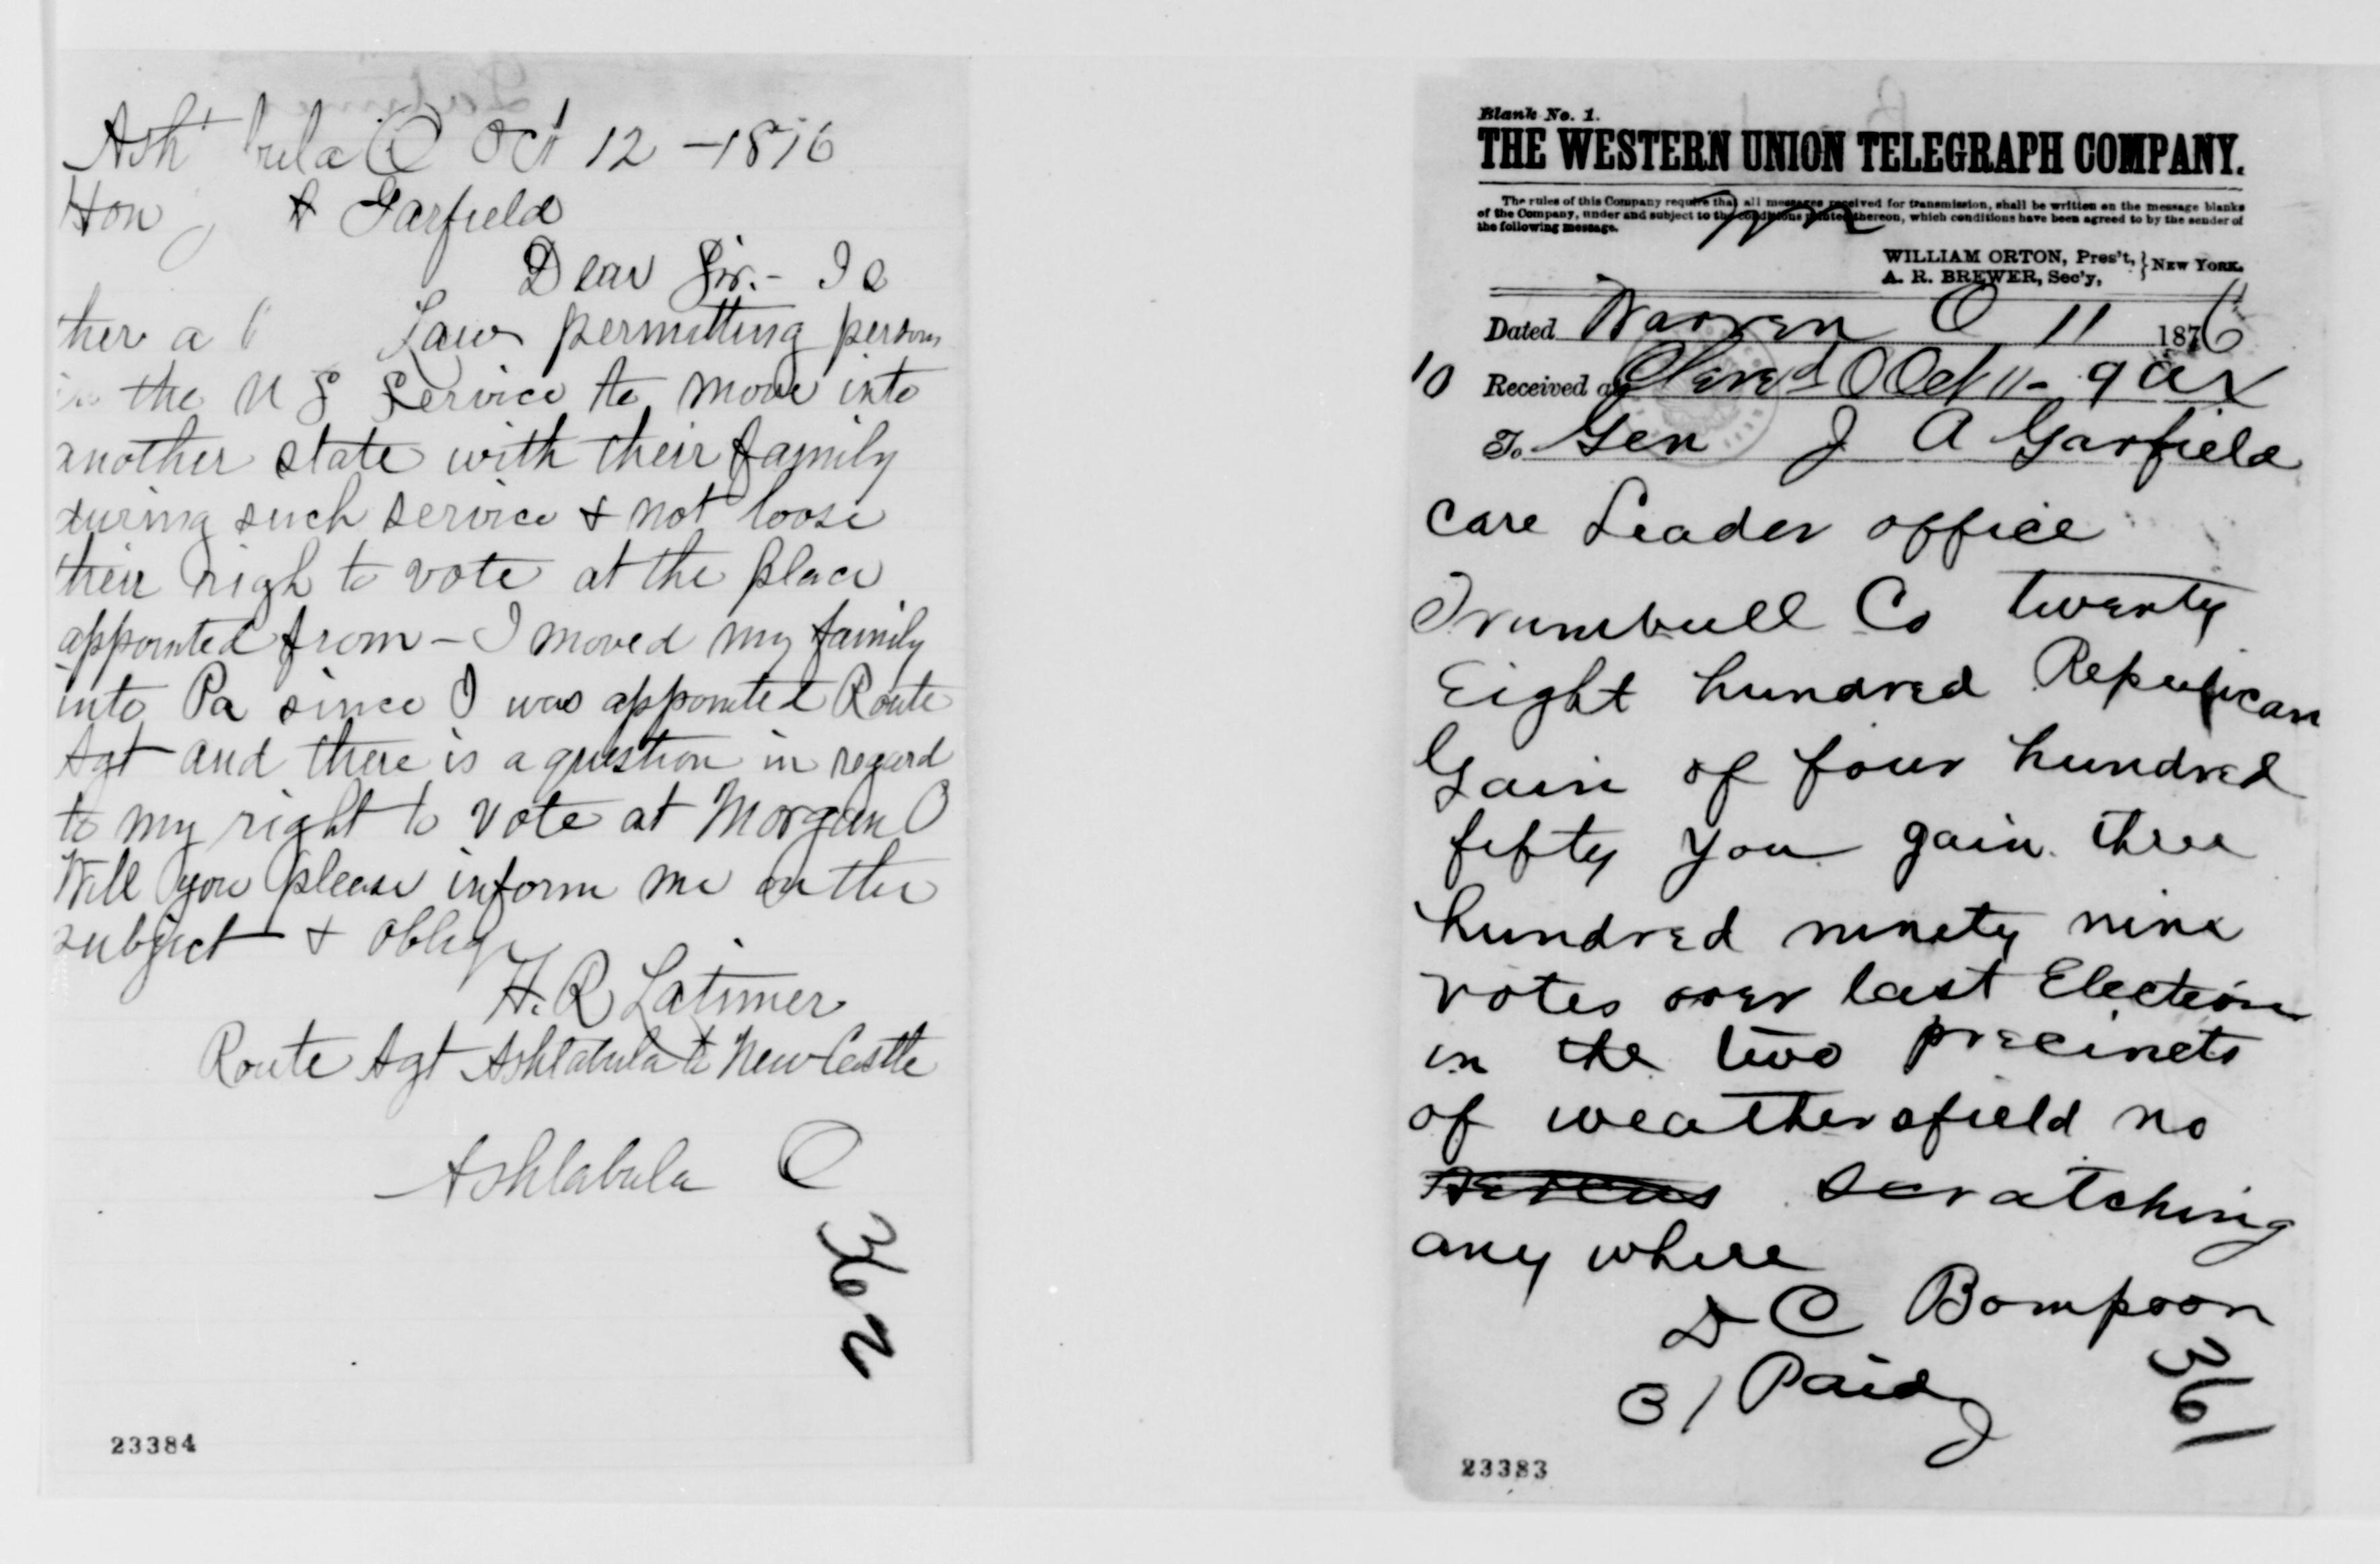 Ash bula O Oct 12 - 1876
Hon J A Garfield
Dear Sir. - Is
ther a Law permitting persons
in the U S Service to move into
another state with their family
during such service & not loose
their righ to vote at the place
appointed from - I moved my family
into Pa since I was appointed Route
Agt and there is a question in regard
to my right to vote at Morgan O
Will you please inform me on the
subject & oblige
H. R Latimer
Route Agt Ashtabula to New Castle
Ashtabula O
362
23384
Blank No. 1.
THE WESTERN UNION TELEGRAPH COMPANY.
The rules of this Company require that all messages received for transmission, shall be written on the message blanks
of the Company, under and subject to the conditions printed thereon, which conditions have been agreed to by the sender of
the following message.
WILLIAM ORTON, Pres't,
A. R. BREWER, Sec'y, } NEW YORK.
Dated Warren O 11 1876
10 Received at Cleved O Oct 11 - 9
To Gen J A Garfield
care Leader office
Trumbull Co twenty
Eight hundred Republican
Gain of four hundred
fifty you gain three
hundred ninety nine
votes over last Election
in the two precincts
of weathersfield no
scratching
any where
D C Bompoon
31 Paid
361
23383